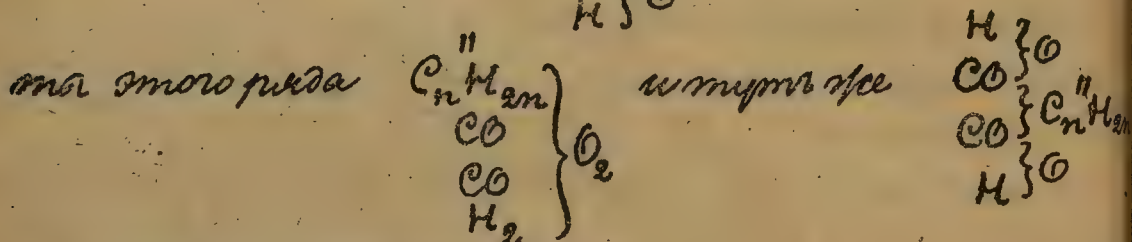 H } O
та этого ряда C_n''H_2n CO CO H_2 } O_2 и тутъ же H } O CO } C_n''H_2n CO } O H